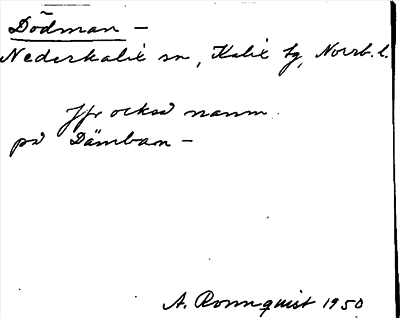 Dödman —
Nederkalix sn, Kalix tg, Norrb. l.
Jfr också namn
på Dämbam —
A. Ronnquist 1950